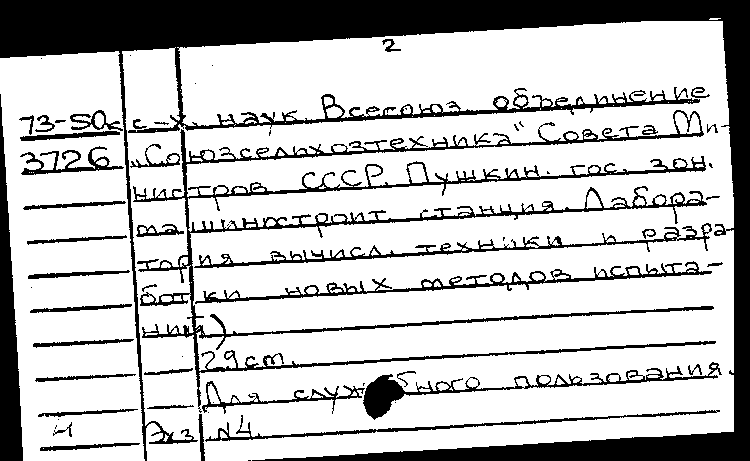 2
73-50с с-х. наук. Всесоюз. объединение
3726 „Союзсельхозтехника" Совета Ми-
нистров СССР. Пушкин. гос. зон.
машиностроит станция. Лабора-
тория вычисл. техники и разра-
ботки новых методов испыта-
ний).
29cm.
Для служебного пользования.
Экз. №4.